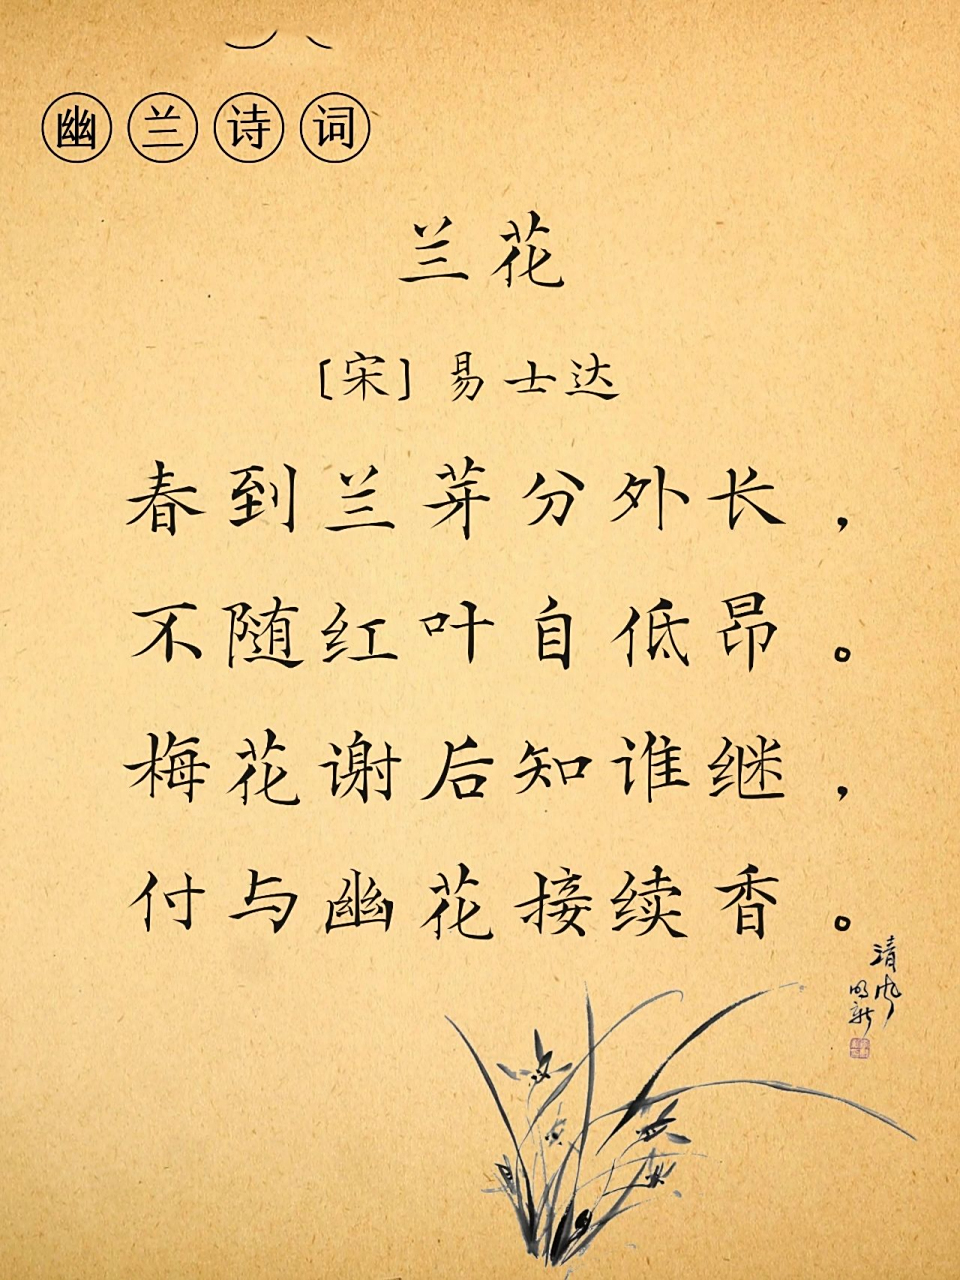 幽兰诗词
兰花
［宋］易士达
春到兰芽分外长，
不随红叶自低昂。
梅花谢后知谁继，
付与幽花接续香。
清风
明新